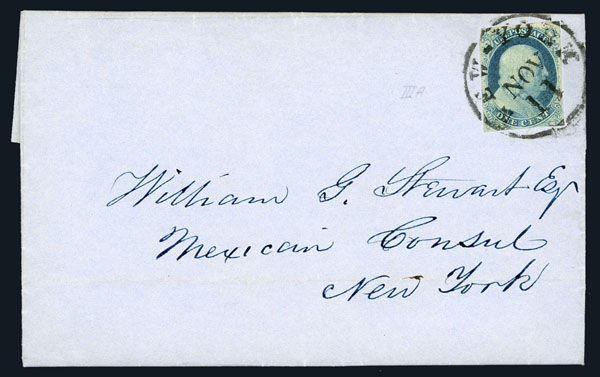 U.S. POSTAGE
ONE CENT
NEW-YORK
NOV
11
IIIA
William G. Stewart Esq
Mexican Consul
New York